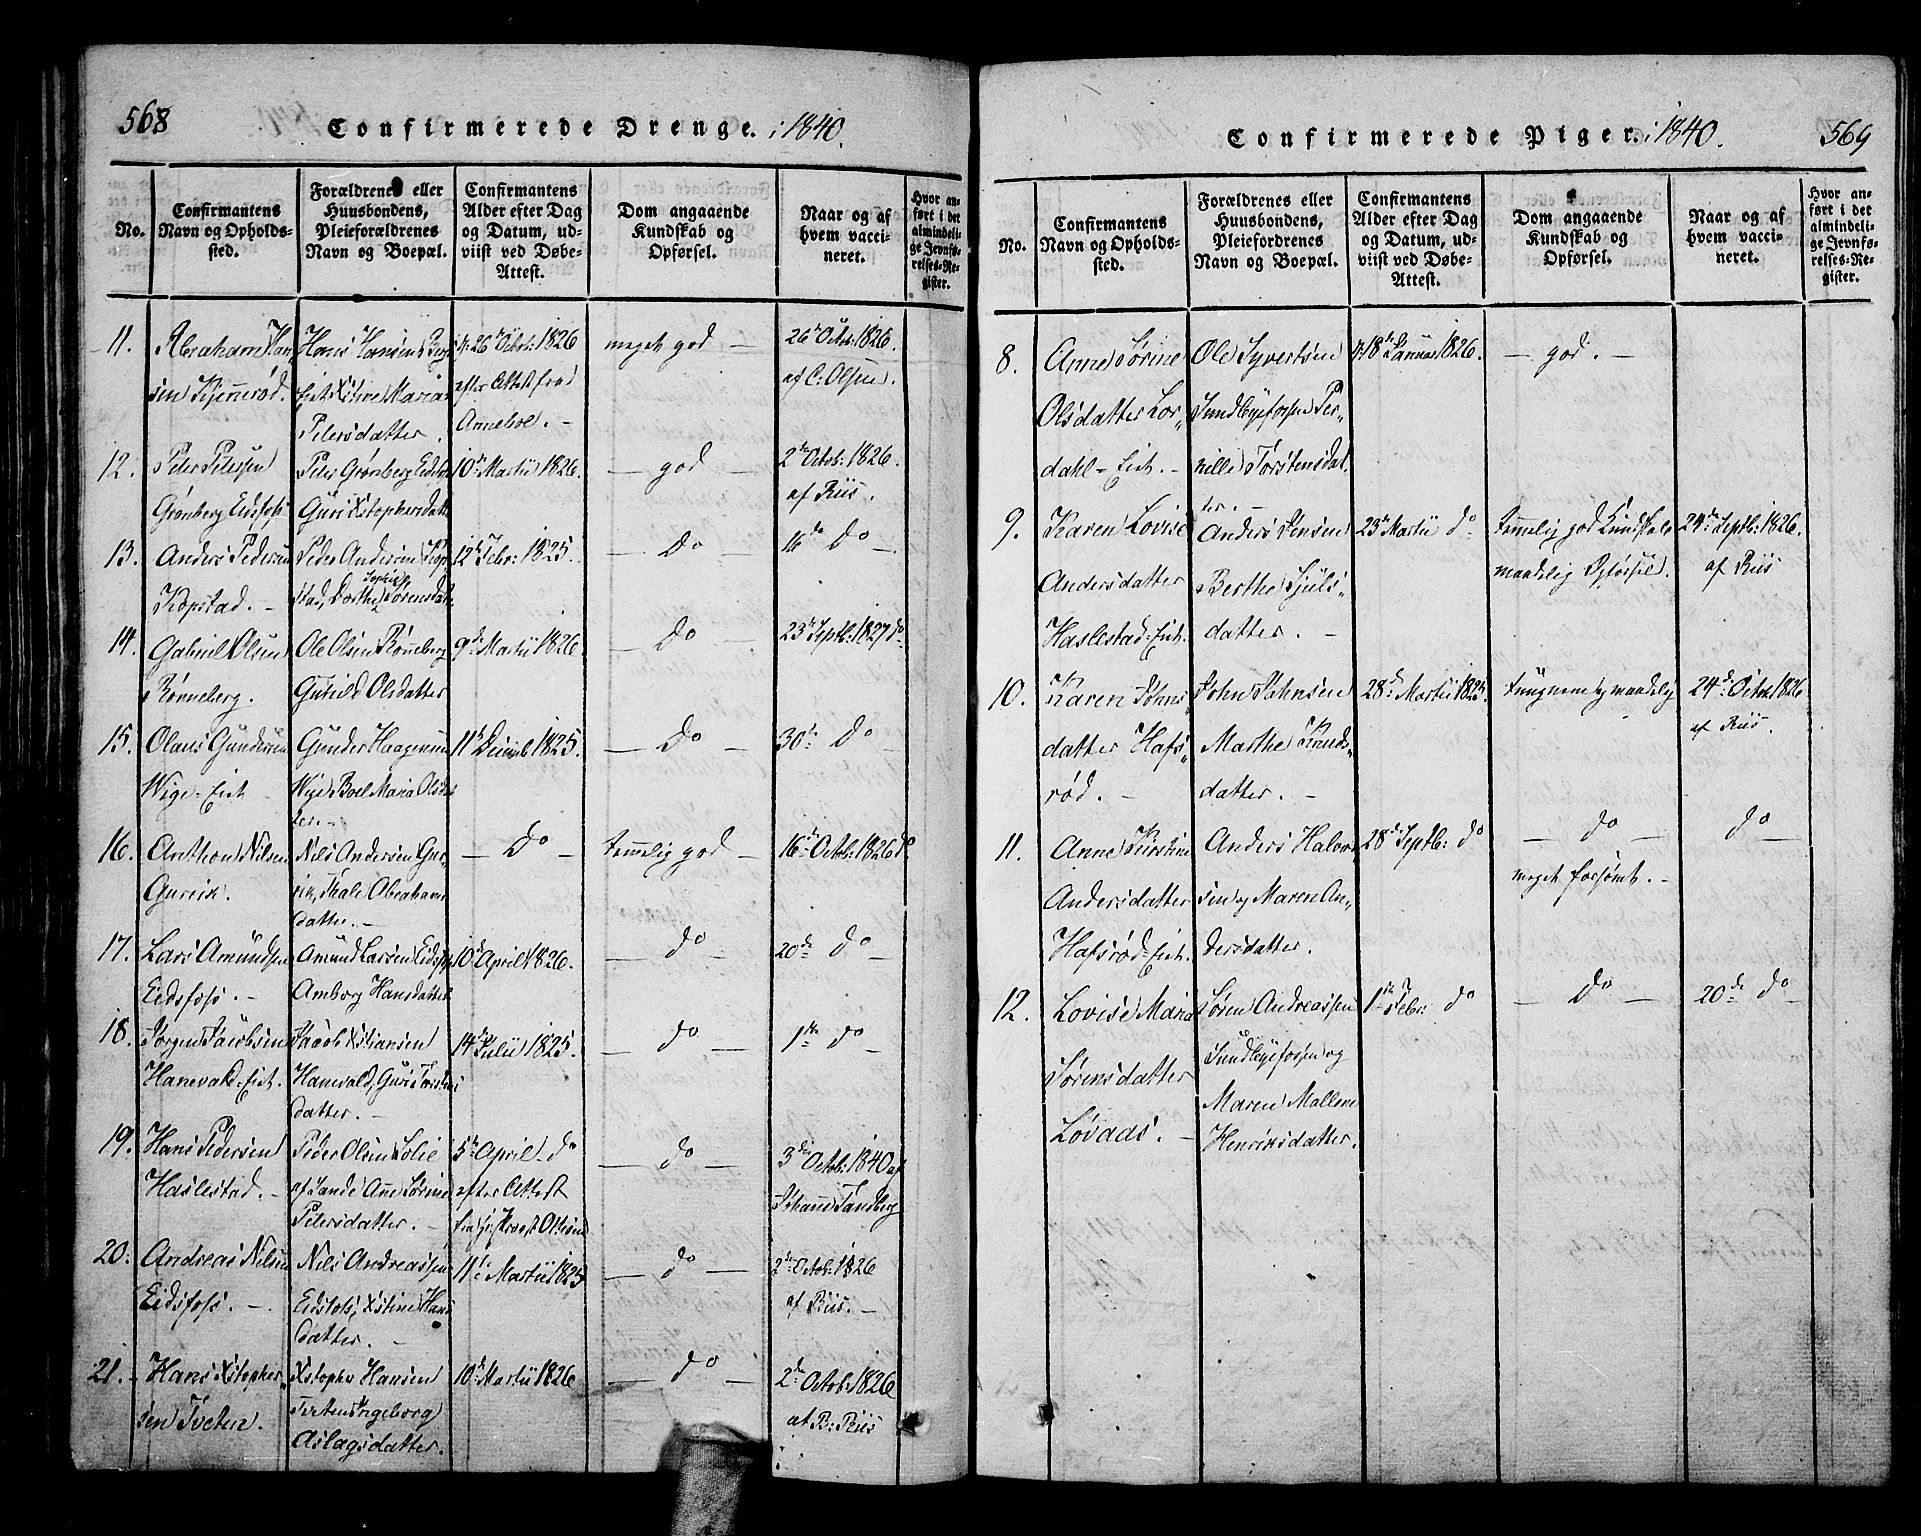 568
Confirmerede Drenge. i 1840.
No.
Confirmantens
Navn og Opholds-
sted.
Forældrenes eller
Huusbondens,
Pleieforældrenes
Navn og Boepæl.
Confirmantens
Alder efter Dag
og Datum, ud-
viist ved Døbe-
Attest.
Dom angaaende
Kundskab og
Opførsel.
Naar og af
hvem vacci-
neret.
Hvor an-
ført i det
almindeli-
ge Jevnfø-
relses-Re-
gister.
11.
Abraham Han
sen
Hans Hansens
Maria
Petersdatter.
26de Octob: 1826
efter Attest fra
Anneboe. -
meget god -
26de Octob: 1826.
af C: Olsen.
12.
Peter Petersen
Grønberg Eidsfoss
Peter Grønberg
Guri Xstophersdatt
10de Martii 1826.
- god -
2de Octob: 1826.
af Riis.
13.
Anders Pedersen
Kopstad. -
Peder Andersen Kop
stad, Dorthe Sophie Sørensdat
12te Febr: 1825.
- Do -
16de Do -
14.
Gabriel Olsen
Rønneberg.
Ole Olsen Rønneberg
Gunild Olsdatter
9de Martii 1826.
- Do -
23de Septb: 1827 do
15.
Olaus Gundersen
Wige - Eich
Gunder Haagensen
Wige Boel Maria Olsdat
ter. -
11te Decemb 1825.
- Do -
30te Do -
16.
Anthon Nilsen
Gurrik.
Nils Andersen Gur
rik, Thale Abrahams
datter. -
- Do -
temelig god -
16de Octob: 1826 do
17.
Lars Amundsen
Eidsfoss. -
Amund Larsen Eidsfoss
Amborg Hansdatter
10de April 1826.
- do -
20de Do -
18.
Jørgen Jacobsen
Hanevald - Eich.
Jacob Xstiansen
Hanevald, Guri Torstens
datter. -
14de Julii 1825.
- do -
1ste do -
19.
Hans Pedersen
Haslestad. -
Peder Olsen Solie
af Sande Ane Sørine
Petersdatter. -
5te April do
efter Attest
fra Hr. Provst Ottesen
- do -
3die Octob: 1840 af
Johanne Tandberg
20.
Andreas Nilsen
Eidsfoss. -
Nils Andreassen
Eidsfoss, Xstine Hans
datter. -
11te Martii 1825
- do -
2de Octob: 1826
af Riis. -
21. -
Hans Xstopher„
sen Tveten.
Xstopher Hansen
Tveten Ingeborg
Aslagsdatter.
10de Martii 1826
- do -
2de Octob: 1826
af B: Riis
Confirmerede Piger. i 1840.
569
No.
Confirmantens
Navn og Opholds-
sted.
Forældrenes eller
Huusbondens,
Pleiefordrenes
Navn og Boepæl.
Confirmantens
Alder efter Dag
og Datum, ud-
viist ved Døbe-
Attest.
Dom angaaende
Kundskab og
Opførsel.
Naar og af
hvem vacci-
neret.
Hvor an-
ført i det
almindeli-
ge Jevnfø-
relses-Re-
gister.
8.
Anne Sørine
Olsdatter Lor„
dahl - Eich. -
Ole Syvertsen
Sundbyefossen Per„
nille Torstensdat
ter. -
18de Januar 1826.
- god. -
9.
Karen Lovise
Andersdatter
Haslestad - Eich.
Anders Jensen
Berthe Sjuls„
datter. -
23de Martii do
temelig god Kundskab
maadelig Opførsel.
24de Septb: 1826.
af Riis
10.
Karen Johns
datter Hafs„
rød. -
John Johnsen
Marthe Knuds„
datter. -
28de Martii 1825.
tungnem og maadelig
24de Octob. 1826
af Riis.
11.
Anne Kirstine
Andersdatter
Hafsrød - Eich.
Anders Halvor
sen og Maren An„
dersdatter.
28de Septb: do
- do -
meget forsømt. -
do
12.
Lovise Maria
Sørensdatter
Løvaas. -
Søren Andreassen
Sundbyefossen og
Maren Mallene
Henriksdatter.
1ste Febr: do
- do -
20de do -